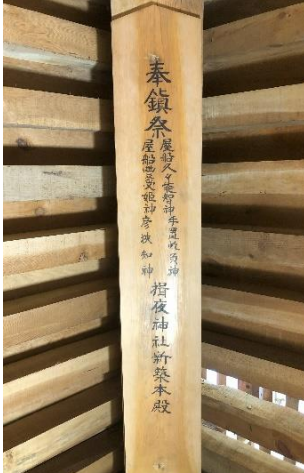 奉鎮祭
屋船久々能智神 手置帆負神
屋船豊受姫神 彦狭知神
揖夜神社新築本殿